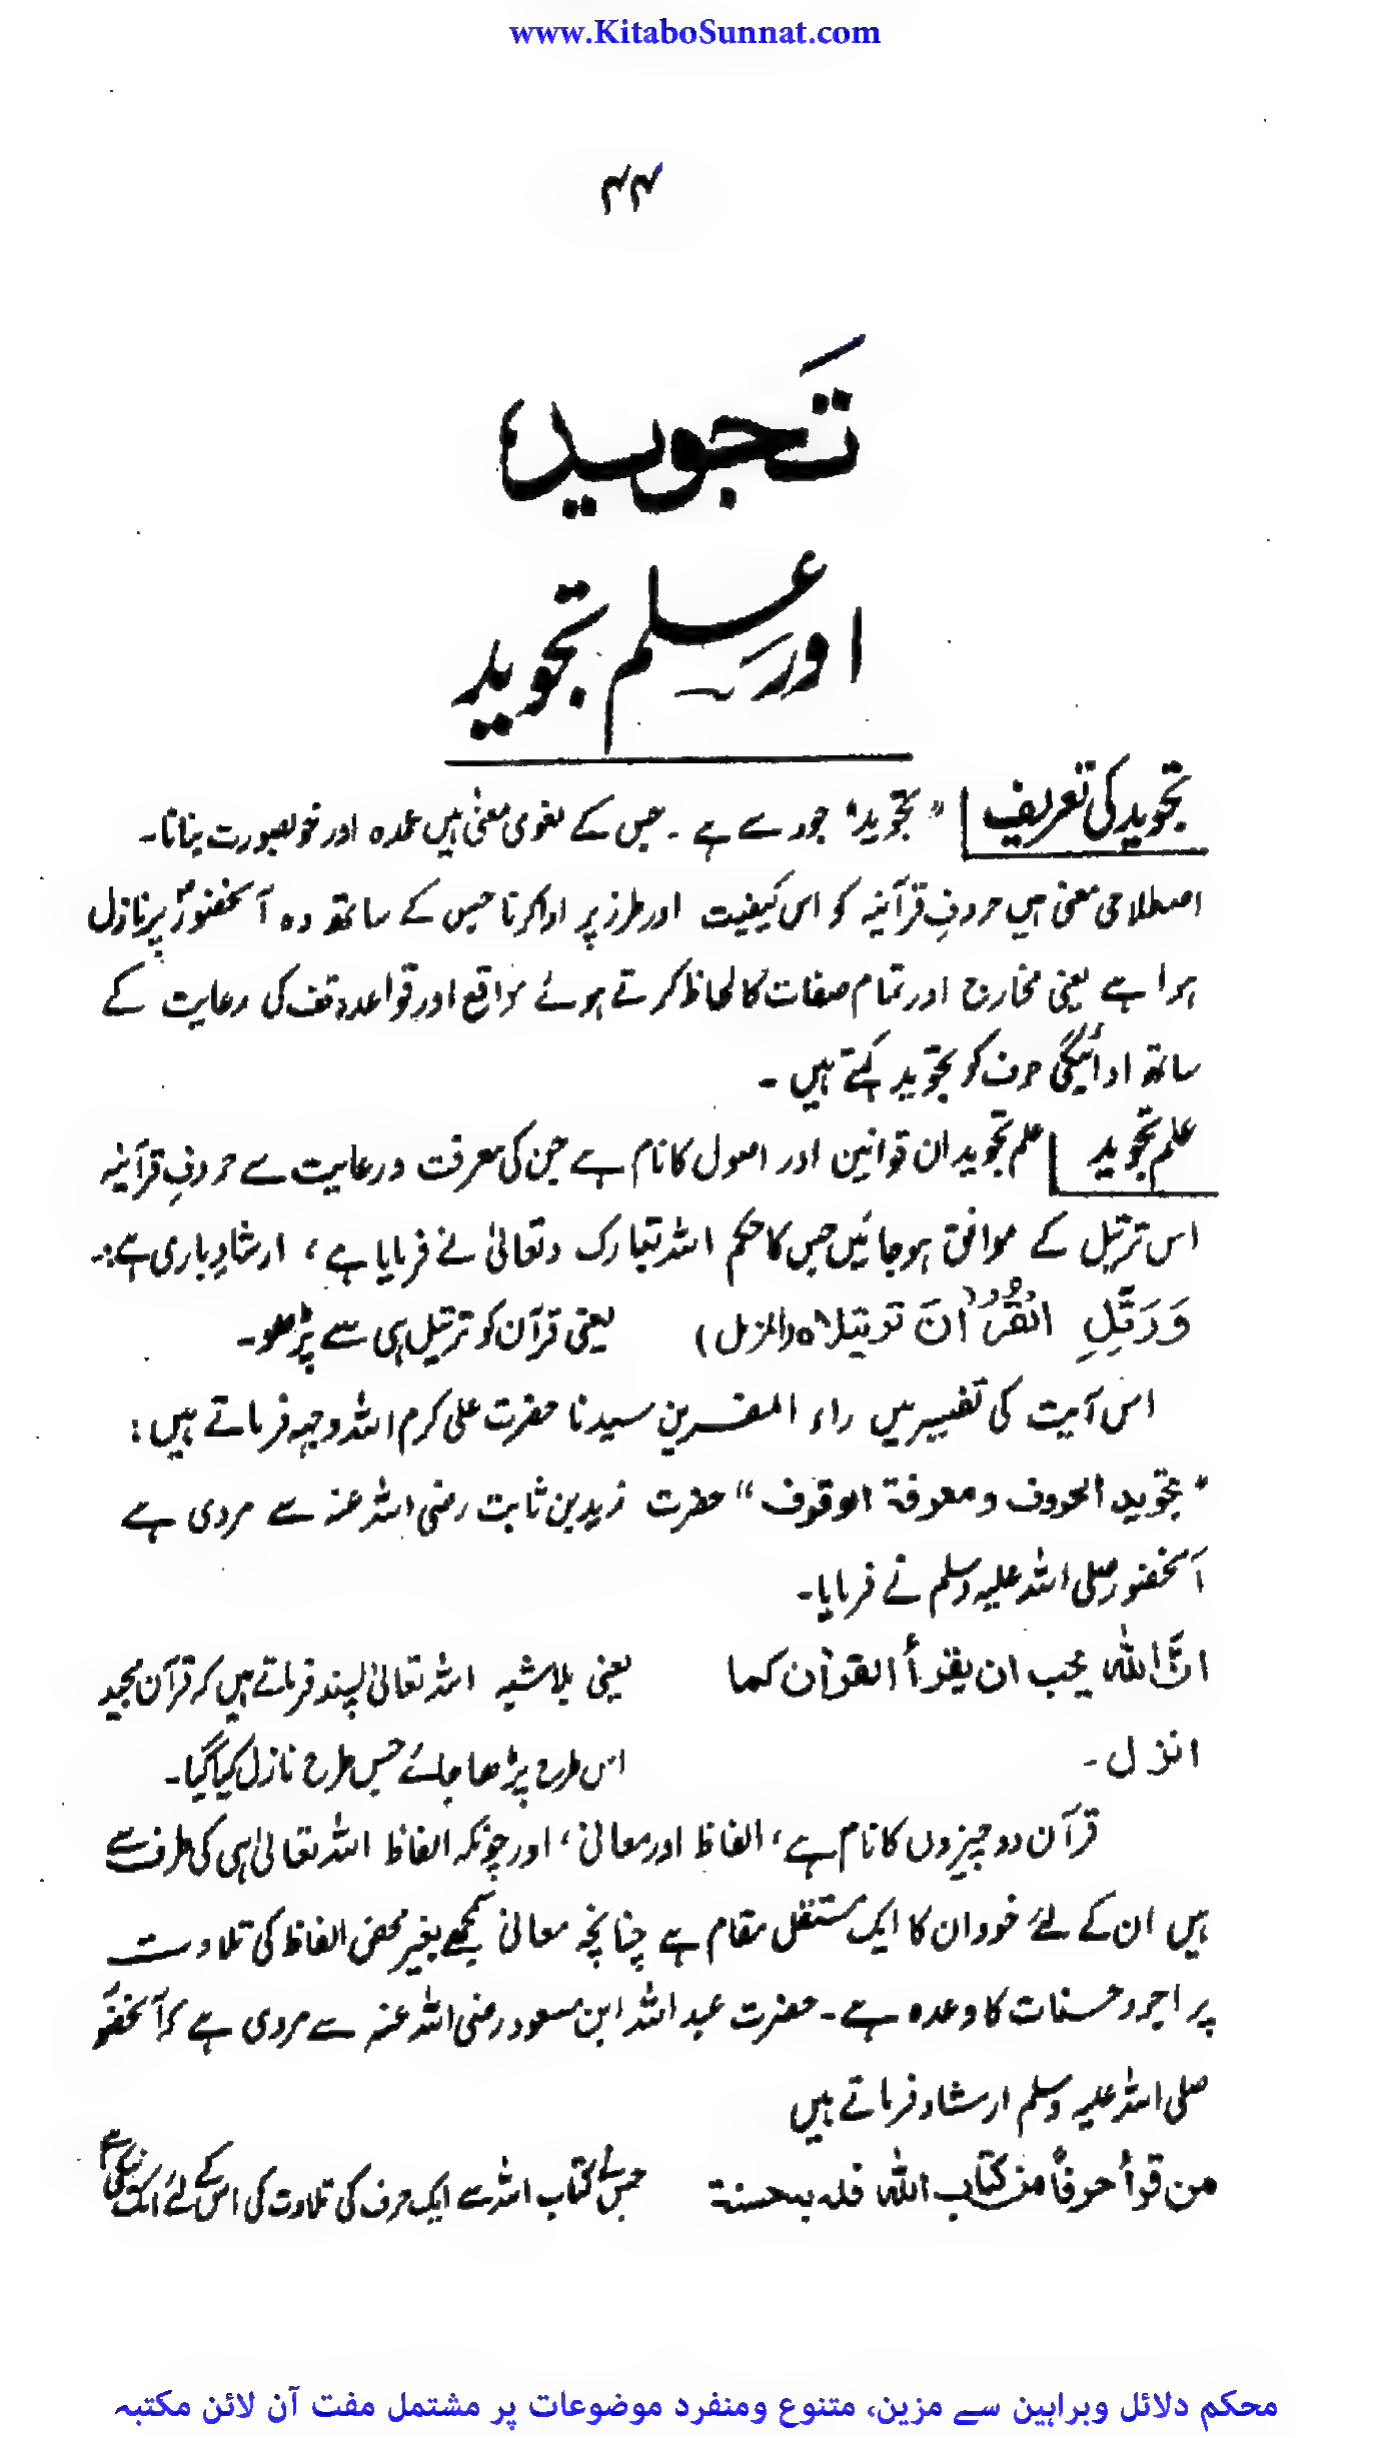 www.KitaboSunnat.com
۴۴
تَجوید
اور علم تجوید
تجوید کی تعریف "تجوید" جود سے ہے ۔ جس کے لغوی معنیٰ ہیں عمدہ اور خوبصورت بنانا۔
اصطلاحی معنی ہیں حروفِ قرآنیہ کو اس کیفیت اور طرز پر ادا کرنا جس کے ساتھ وہ آنحضورؐ پر نازل
ہوا ہے یعنی مخارج اور تمام صفات کا لحاظ کرتے ہوئے مواقع اور قواعد وقف کی رعایت کے
ساتھ ادائیگی حرف کو تجوید کہتے ہیں ۔
علم تجوید علم تجوید ان قوانین اور اصول کا نام ہے جن کی معرفت و رعایت سے حروفِ قرآنیہ
اس ترتیل کے موافق ہو جائیں جس کا حکم اللہ تبارک وتعالیٰ نے فرمایا ہے، ارشادِ باری ہے:۔
وَرَتِّلِ الْقُرْاٰنَ تَرتیلاہ (المزمل) یعنی قرآن کو ترتیل ہی سے پڑھو۔
اس آیت کی تفسیر میں راء المفسرین سیدنا حضرت علی کرم اللہ وجہہ فرماتے ہیں :
"تجوید الحروف ومعرفة الوقوف" حضرت زید بن ثابت رضی اللہ عنہ سے مروی ہے
آنحضور صلی اللہ علیہ وسلم نے فرمایا۔
انَّ اللّٰہ یحب ان یقرأ القرآن کما یعنی بلاشبہ اللہ تعالیٰ پسند فرماتے ہیں کہ قرآن مجید
انزل۔ اس طرح پڑھا جائے جس طرح نازل کیا گیا۔
قرآن دو چیزوں کا نام ہے، الفاظ اور معانی، اور چونکہ الفاظ اللہ تعالیٰ ہی کی طرف سے
ہیں ان کے لئے خود ان کا ایک مستقل مقام ہے چنانچہ معانی سمجھے بغیر محض الفاظ کی تلاوت
پر اجر و حسنات کا وعدہ ہے۔ حضرت عبداللہ ابن مسعود رضی اللہ عنہ سے مروی ہے کہ آنحضور
صلی اللہ علیہ وسلم ارشاد فرماتے ہیں
من قرأ حرفاً من کتاب اللّٰہ فلہ بہ حسنة جس نے کتاب اللہ سے ایک حرف کی تلاوت کی اس کے لئے ایک نیکی ہے
محکم دلائل وبراہین سے مزین، متنوع ومنفرد موضوعات پر مشتمل مفت آن لائن مکتبہ